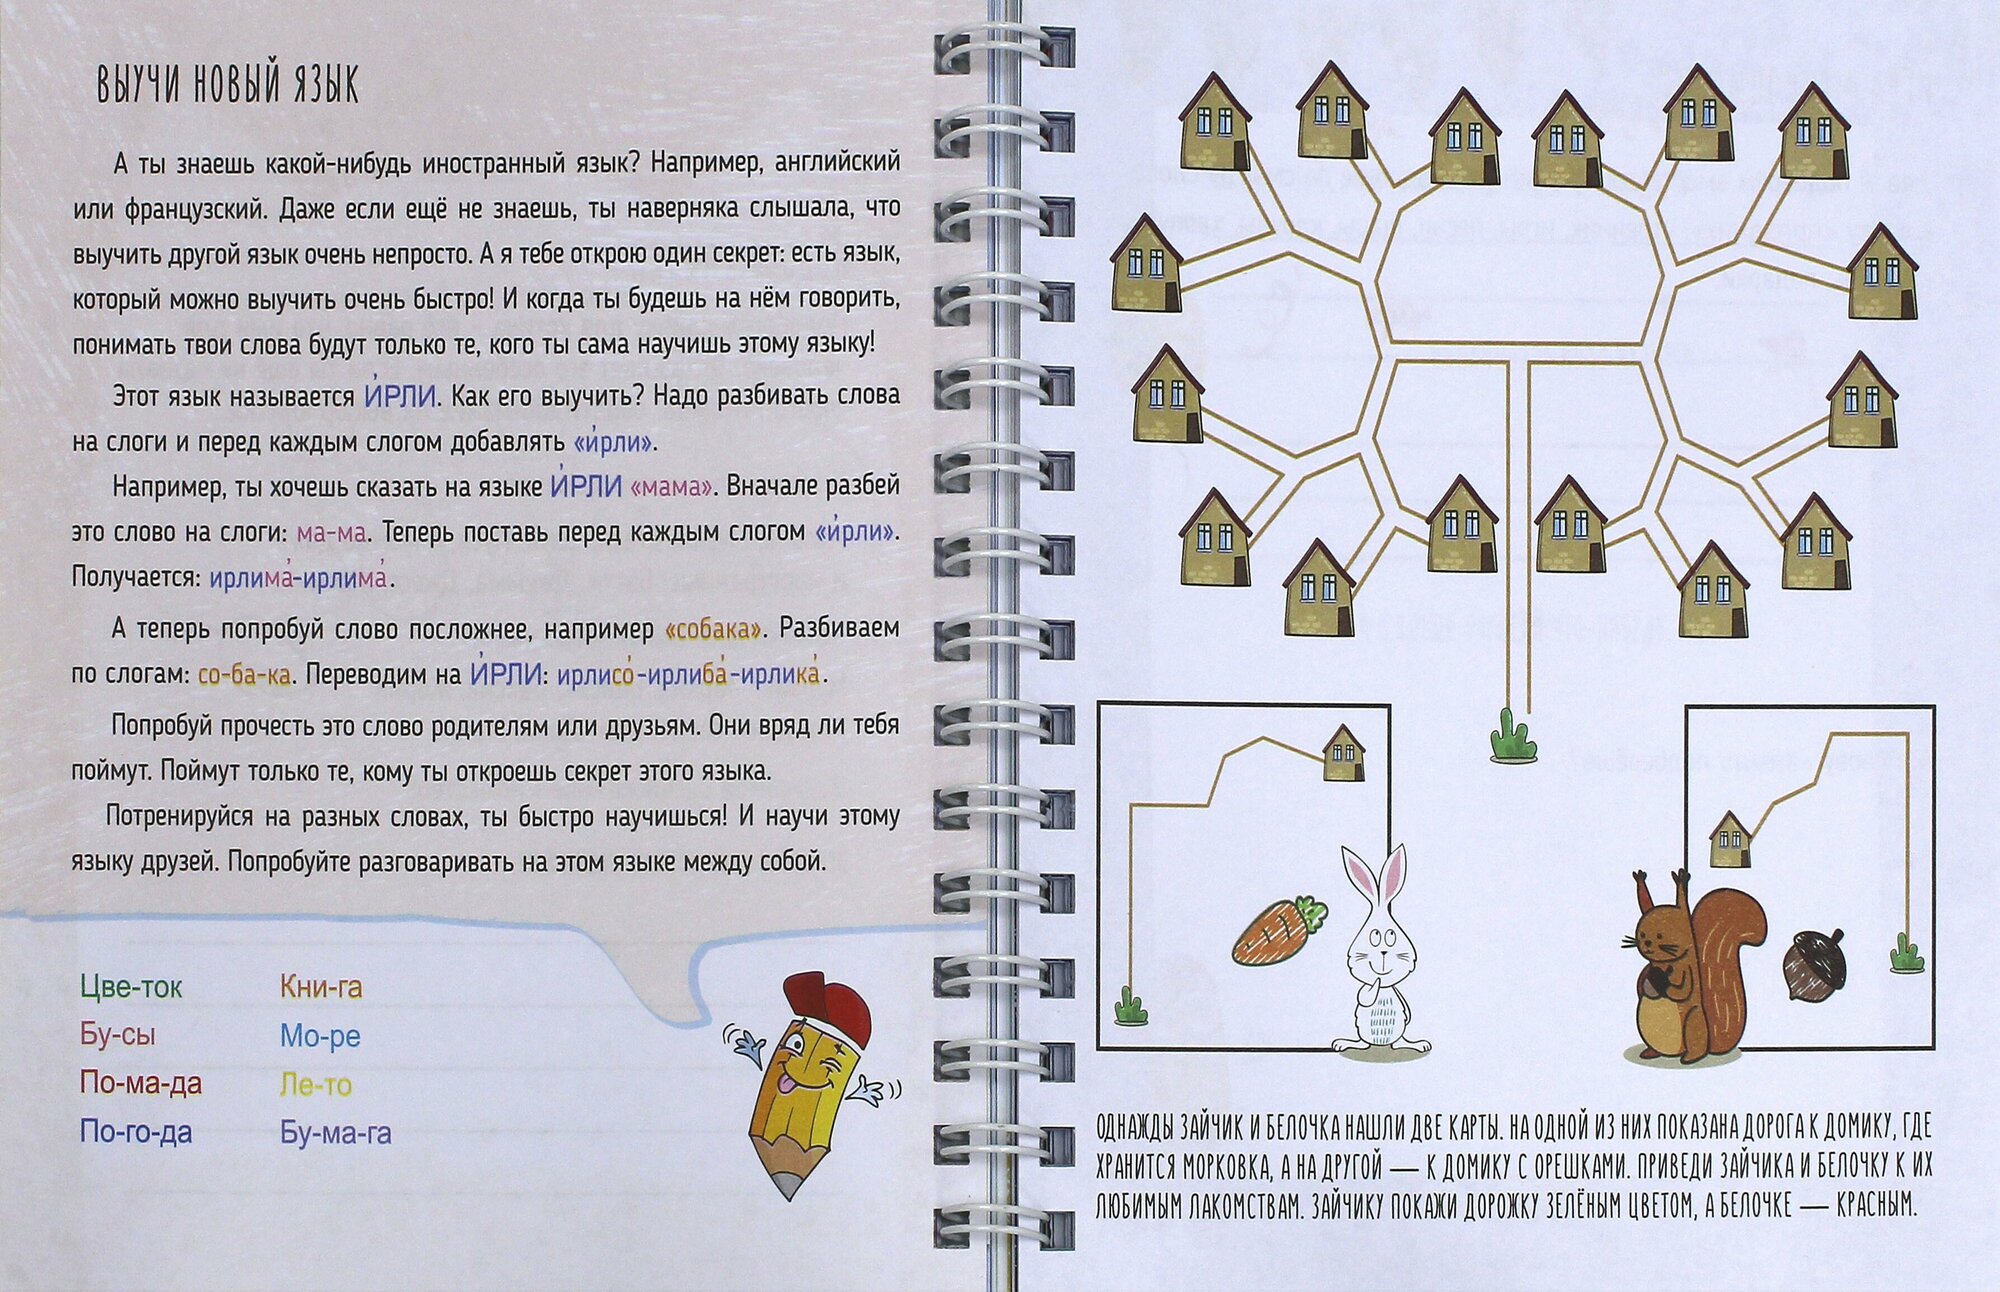 ВЫУЧИ НОВЫЙ ЯЗЫК
А ты знаешь какой-нибудь иностранный язык? Например, английский
или французский. Даже если ещё не знаешь, ты наверняка слышала, что
выучить другой язык очень непросто. А я тебе открою один секрет: есть язык,
который можно выучить очень быстро! И когда ты будешь на нём говорить,
понимать твои слова будут только те, кого ты сама научишь этому языку!
Этот язык называется И́РЛИ. Как его выучить? Надо разбивать слова
на слоги и перед каждым слогом добавлять «и́рли».
Например, ты хочешь сказать на языке И́РЛИ «мама». Вначале разбей
это слово на слоги: ма-ма. Теперь поставь перед каждым слогом «и́рли».
Получается: ирлима́-ирлима́.
А теперь попробуй слово посложнее, например «собака». Разбиваем
по слогам: со-ба-ка. Переводим на И́РЛИ: ирлисо́-ирлиба́-ирлика́.
Попробуй прочесть это слово родителям или друзьям. Они вряд ли тебя
поймут. Поймут только те, кому ты откроешь секрет этого языка.
Потренируйся на разных словах, ты быстро научишься! И научи этому
языку друзей. Попробуйте разговаривать на этом языке между собой.
Цве-ток
Бу-сы
По-ма-да
По-го-да
Кни-га
Мо-ре
Ле-то
Бу-ма-га
ОДНАЖДЫ ЗАЙЧИК И БЕЛОЧКА НАШЛИ ДВЕ КАРТЫ. НА ОДНОЙ ИЗ НИХ ПОКАЗАНА ДОРОГА К ДОМИКУ, ГДЕ
ХРАНИТСЯ МОРКОВКА, А НА ДРУГОЙ — К ДОМИКУ С ОРЕШКАМИ. ПРИВЕДИ ЗАЙЧИКА И БЕЛОЧКУ К ИХ
ЛЮБИМЫМ ЛАКОМСТВАМ. ЗАЙЧИКУ ПОКАЖИ ДОРОЖКУ ЗЕЛЁНЫМ ЦВЕТОМ, А БЕЛОЧКЕ — КРАСНЫМ.